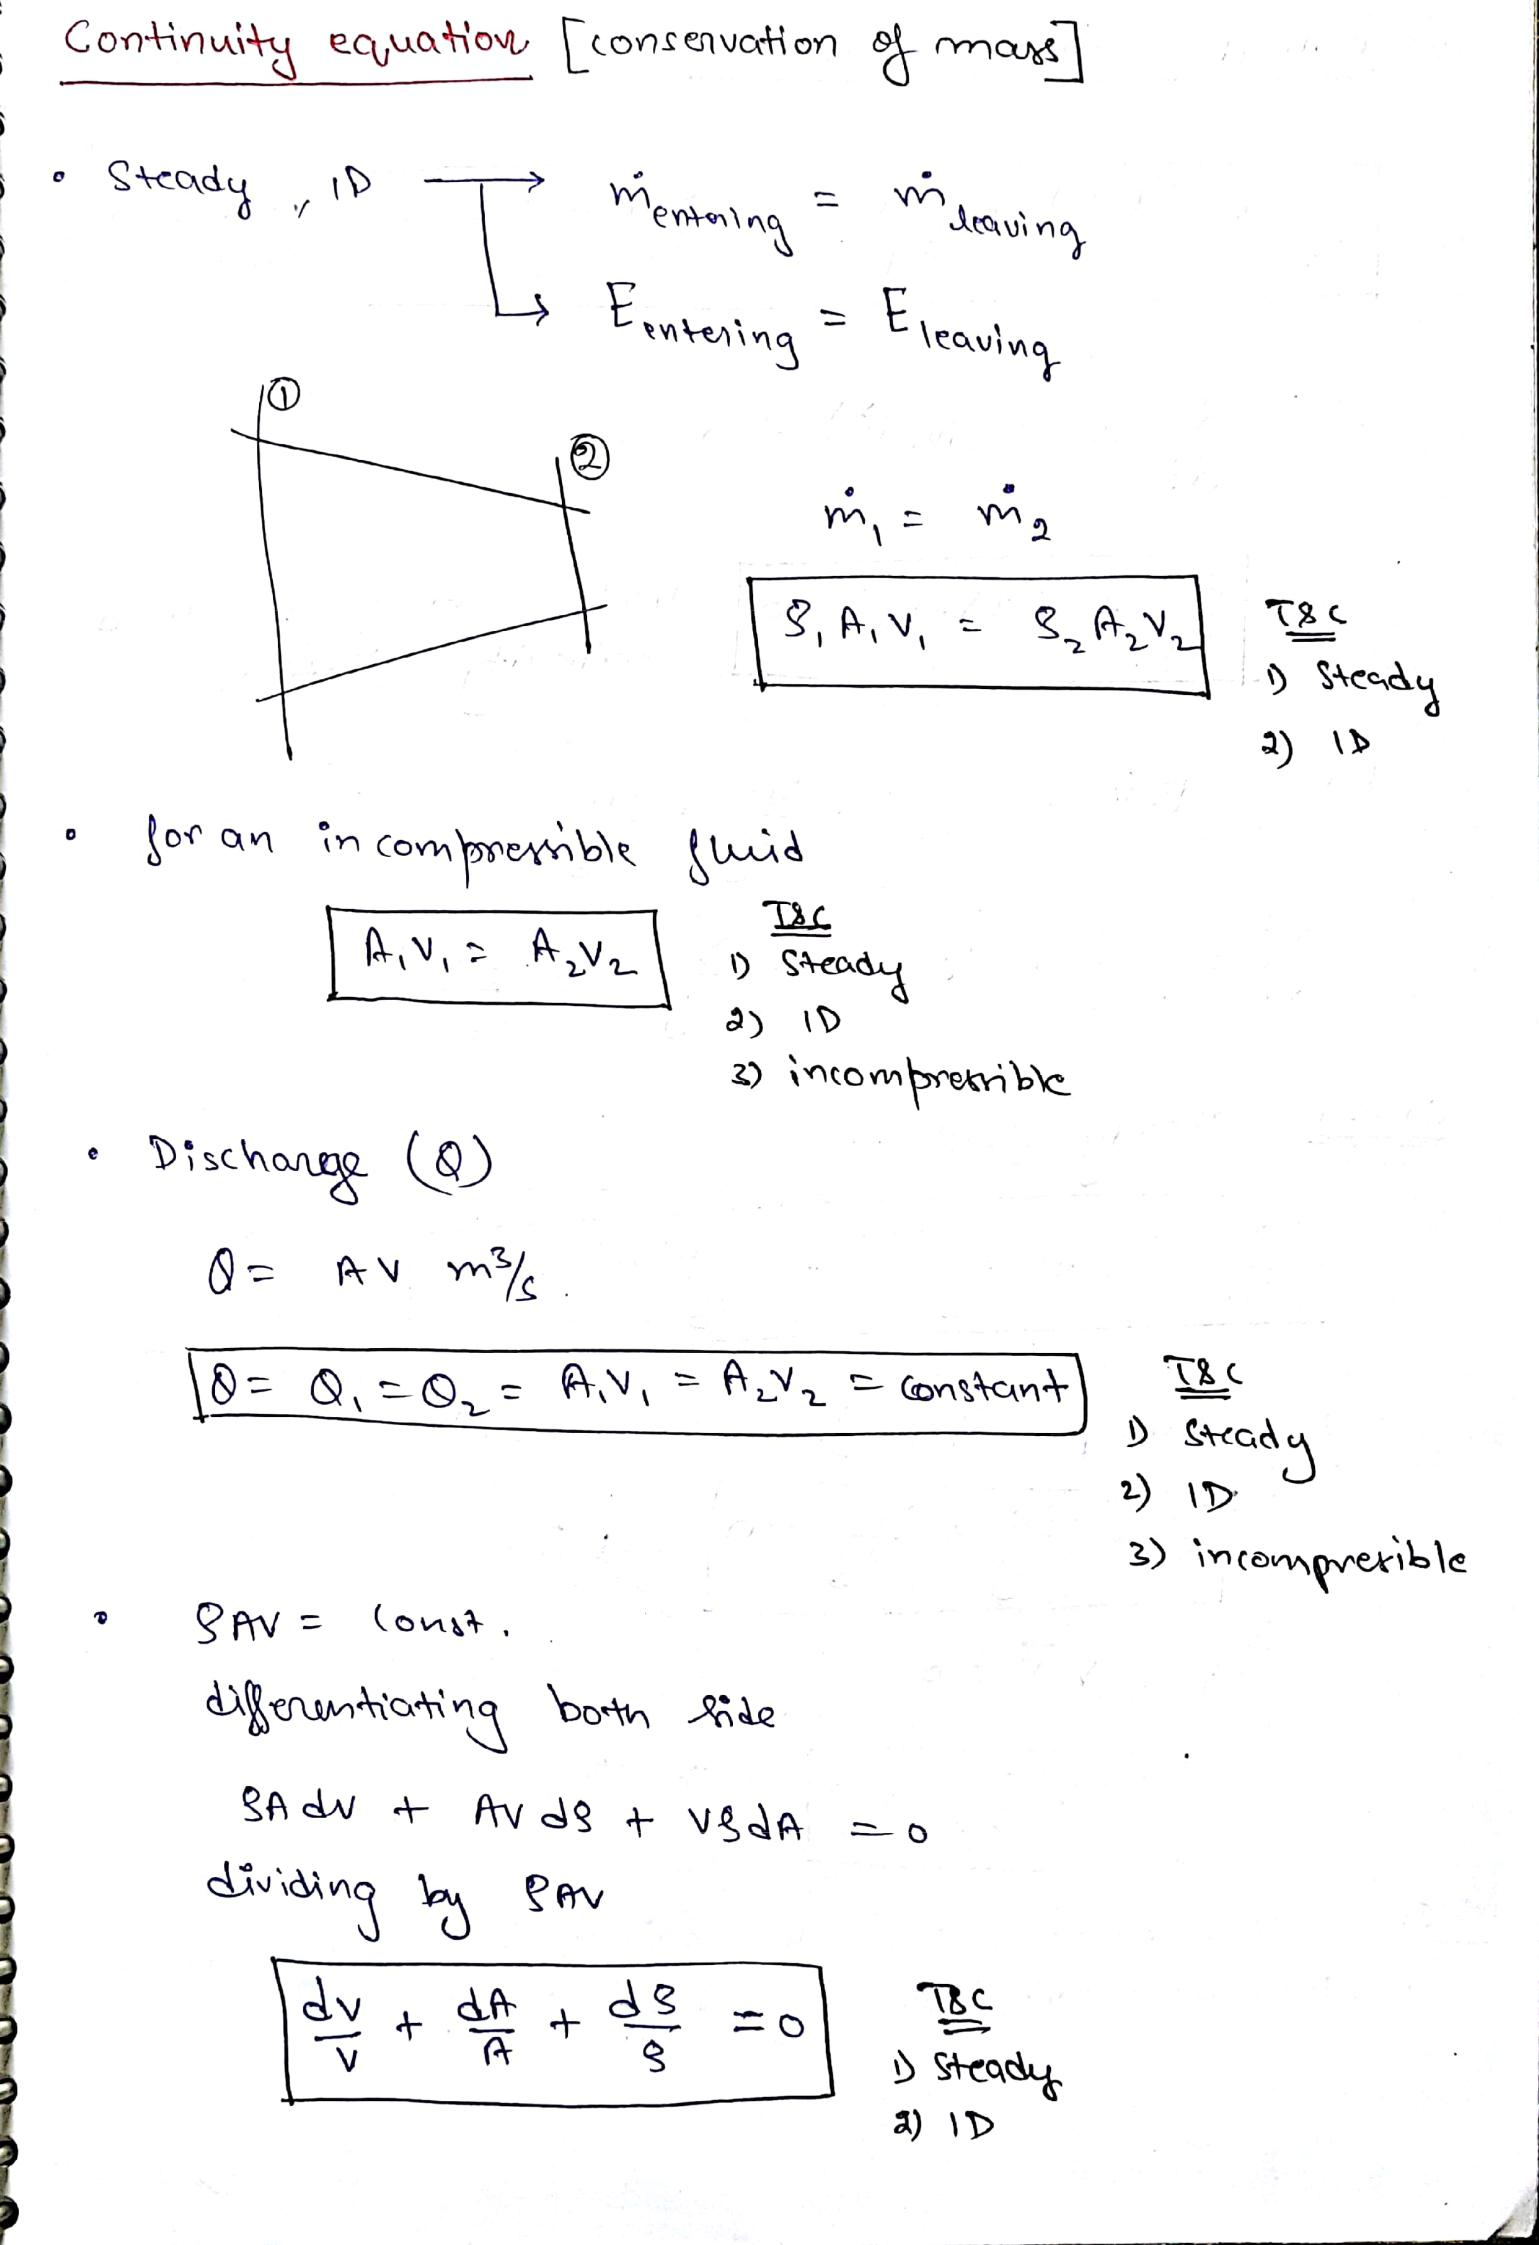 Continuity equation [conservation of mass]
• Steady, 1D → ṁentering = ṁleaving
↳ Eentering = Eleaving
①
②
ṁ₁ = ṁ₂
ρ₁A₁V₁ = ρ₂A₂V₂
T&C
1) Steady
2) 1D
• for an incompressible fluid
A₁V₁ = A₂V₂
T&C
1) Steady
2) 1D
3) incompressible
• Discharge (Q)
Q = AV m³/s.
Q = Q₁ = Q₂ = A₁V₁ = A₂V₂ = constant
T&C
1) Steady
2) 1D
3) incompressible
• ρAV = const.
differentiating both side
ρAdv + AVdρ + VρdA = 0
dividing by ρAV
dv/V + dA/A + dρ/ρ = 0
T&C
1) Steady
2) 1D